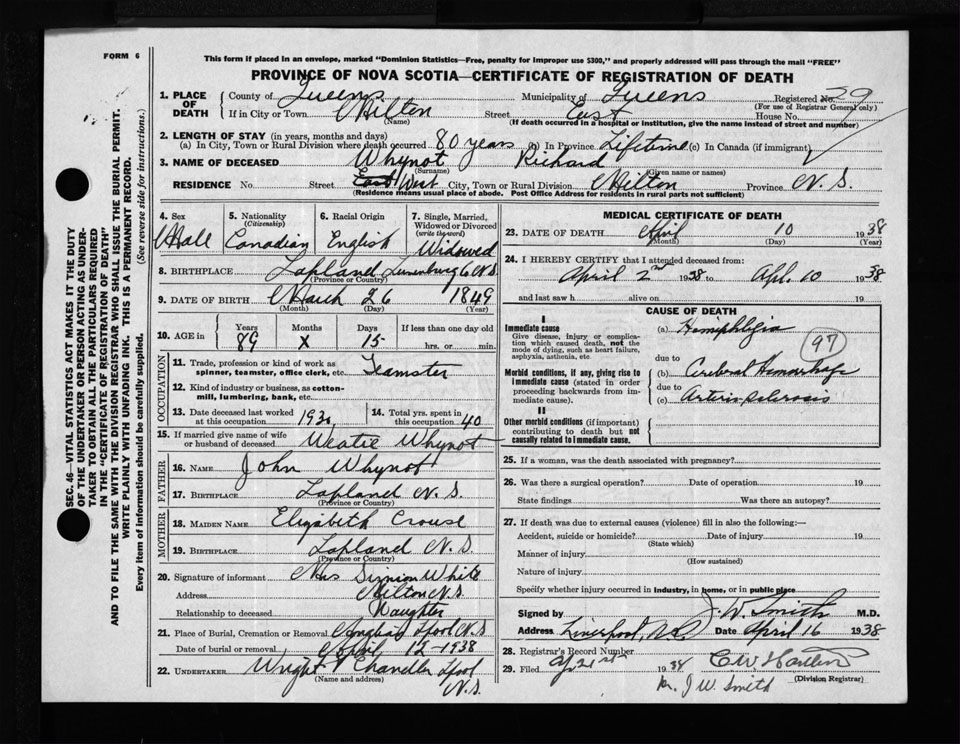 FORM 6
This form if placed in an envelope, marked "Dominion Statistics—Free, penalty for improper use $300," and properly addressed will pass through the mail "FREE"
PROVINCE OF NOVA SCOTIA—CERTIFICATE OF REGISTRATION OF DEATH
SEC. 46—VITAL STATISTICS ACT MAKES IT THE DUTY
OF THE UNDERTAKER OR PERSON ACTING AS UNDER-
TAKER TO OBTAIN ALL THE PARTICULARS REQUIRED
IN THE "CERTIFICATE OF REGISTRATION OF DEATH"
AND TO FILE THE SAME WITH THE DIVISION REGISTRAR WHO SHALL ISSUE THE BURIAL PERMIT.
WRITE PLAINLY WITH UNFADING INK. THIS IS A PERMANENT RECORD.
Every item of information should be carefully supplied. (See reverse side for instructions.)
1. PLACE OF DEATH County of Queens Municipality of Queens Registered No. 29
(For use of Registrar General only)
If in City or Town Milton Street East House No.
(Name) (If death occurred in a hospital or institution, give the name instead of street and number)
2. LENGTH OF STAY (in years, months and days)
(a) In City, Town or Rural Division where death occurred 80 years (b) In Province Lifetime (c) In Canada (if immigrant)
3. NAME OF DECEASED Whynot Richard
(Surname) (Given name or names)
RESIDENCE No. Street East West City, Town or Rural Division Milton Province N.S.
(Residence means usual place of abode. Post Office Address for residents in rural parts not sufficient)
4. Sex Mall
5. Nationality (Citizenship) Canadian
6. Racial Origin English
7. Single, Married, Widowed or Divorced (write the word) Widowed
8. BIRTHPLACE Lapland Lunenburg Co N.S.
9. DATE OF BIRTH March 26 1849
(Month) (Day) (Year)
10. AGE in Years 89 Months X Days 15 If less than one day old hrs. or min.
OCCUPATION
11. Trade, profession or kind of work as spinner, teamster, office clerk, etc. Teamster
12. Kind of industry or business, as cotton-mill, lumbering, bank, etc.
13. Date deceased last worked at this occupation
14. Total yrs. spent in this occupation 40
15. If married give name of wife or husband of deceased Whynot
FATHER
16. NAME John Whynot
17. BIRTHPLACE Lapland N.S.
(Province or Country)
MOTHER
18. MAIDEN NAME Elizabeth Crouse
19. BIRTHPLACE Lapland N.S.
(Province or Country)
20. Signature of informant Mrs Simion White
Address Milton N.S.
Relationship to deceased Daughter
21. Place of Burial, Cremation or Removal Lpool N.S
Date of burial or removal April 12-1938
22. UNDERTAKER Wright & Chandler Lpool
(Name and address) N.S.
MEDICAL CERTIFICATE OF DEATH
23. DATE OF DEATH April 10 1938
(Month) (Day) (Year)
24. I HEREBY CERTIFY that I attended deceased from:
April 2nd 1938 to Apl. 10 1938
and last saw h alive on 19
CAUSE OF DEATH
I
Immediate cause
Give disease, injury or complication which caused death, not the mode of dying, such as heart failure, asphyxia, asthenia, etc.
(a) Hemiphlegia
97
due to
Morbid conditions, if any, giving rise to immediate cause (stated in order proceeding backwards from immediate cause).
(b) Cerebral Hemorrhage
due to
(c)
II
Other morbid conditions (if important) contributing to death but not causally related to immediate cause.
25. If a woman, was the death associated with pregnancy?
26. Was there a surgical operation? Date of operation 19
State findings Was there an autopsy?
27. If death was due to external causes (violence) fill in also the following:—
Accident, suicide or homicide? Date of injury 19
(State which)
Manner of injury
(How sustained)
Nature of injury
Specify whether injury occurred in industry, in home, or in public place
Signed by J. W. Smith M.D.
Address Liverpool, N.S. Date April 16 1938
28. Registrar's Record Number
29. Filed 21st 1938
(Division Registrar)
J W. Smith